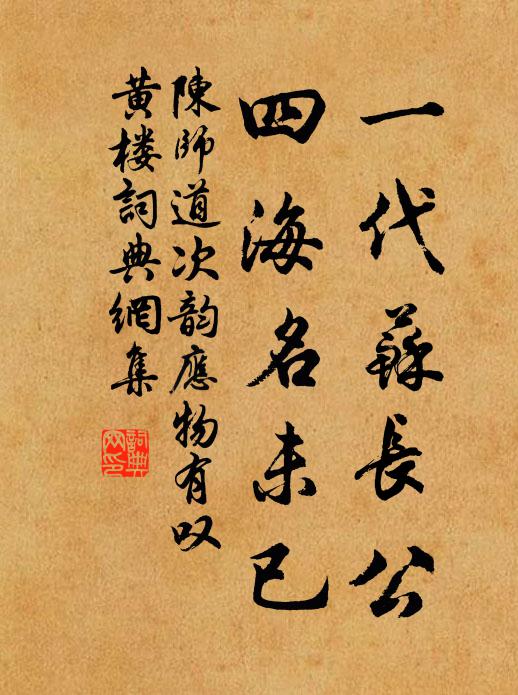 一代蘇長公
四海名未已
陳師道次韵應物有叹
黄楼詞典網集
詞典網印